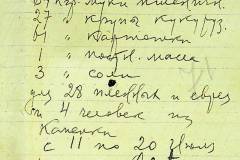 кгр. муки пшеничн.
27 " крупы кукуруз.
" картошки
1 " постн. масла
3 " соли
для 28 пленных и евреев
4 человек из
Каменки
с 11 по 20 июля